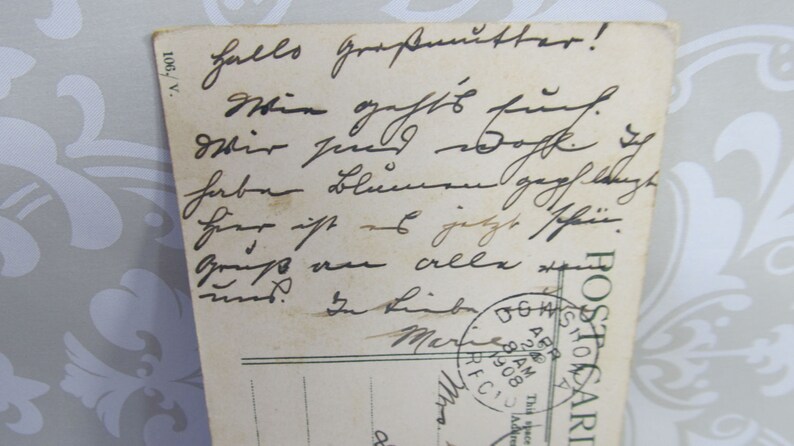 106/V.
Hallo Großmutter!
Wie geht's Euch.
Wir sind wohl. Ich
habe Blumen gepflanzt
hier ist es jetzt schön.
Gruß an alle von
uns. In Liebe
Marie
POST CAR
APR
8 AM
1908
This space
Mrs.